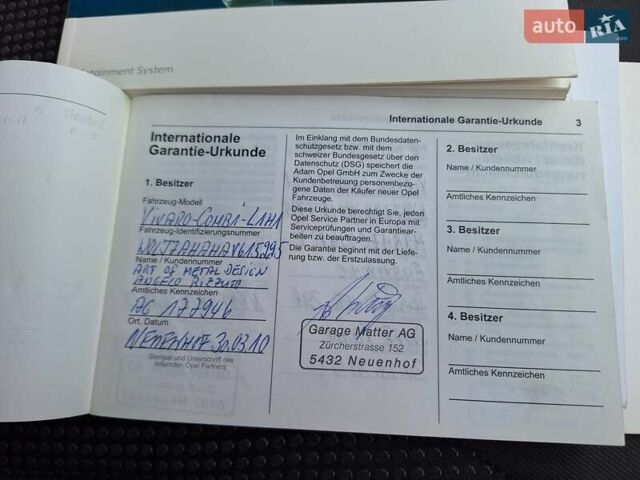 auto RIA .com
tainment System
Internationale Garantie-Urkunde 3
Internationale
Garantie-Urkunde
1. Besitzer
Fahrzeug-Modell
VIVARO-COMBI-L1H1
Fahrzeug-Identifizierungsnummer
Name / Kundennummer
ART OF METAL DESIGN
ANGELO RIZZUTO
Amtliches Kennzeichen
AG 177946
Ort, Datum
NEUENHOF 30.03.10
Stempel und Unterschrift des
liefernden Opel Partners
Im Einklang mit dem Bundesdaten-
schutzgesetz bzw. mit dem
schweizer Bundesgesetz über den
Datenschutz (DSG) speichert die
Adam Opel GmbH zum Zwecke der
Kundenbetreuung personenbezo-
gene Daten der Käufer neuer Opel
Fahrzeuge.
Diese Urkunde berechtigt Sie, jeden
Opel Service Partner in Europa mit
Serviceprüfungen und Garantiear-
beiten zu beauftragen.
Die Garantie beginnt mit der Liefe-
rung bzw. der Erstzulassung.
Garage Matter AG
Zürcherstrasse 152
5432 Neuenhof
2. Besitzer
Name / Kundennummer
Amtliches Kennzeichen
3. Besitzer
Name / Kundennummer
Amtliches Kennzeichen
4. Besitzer
Name / Kundennummer
Amtliches Kennzeichen